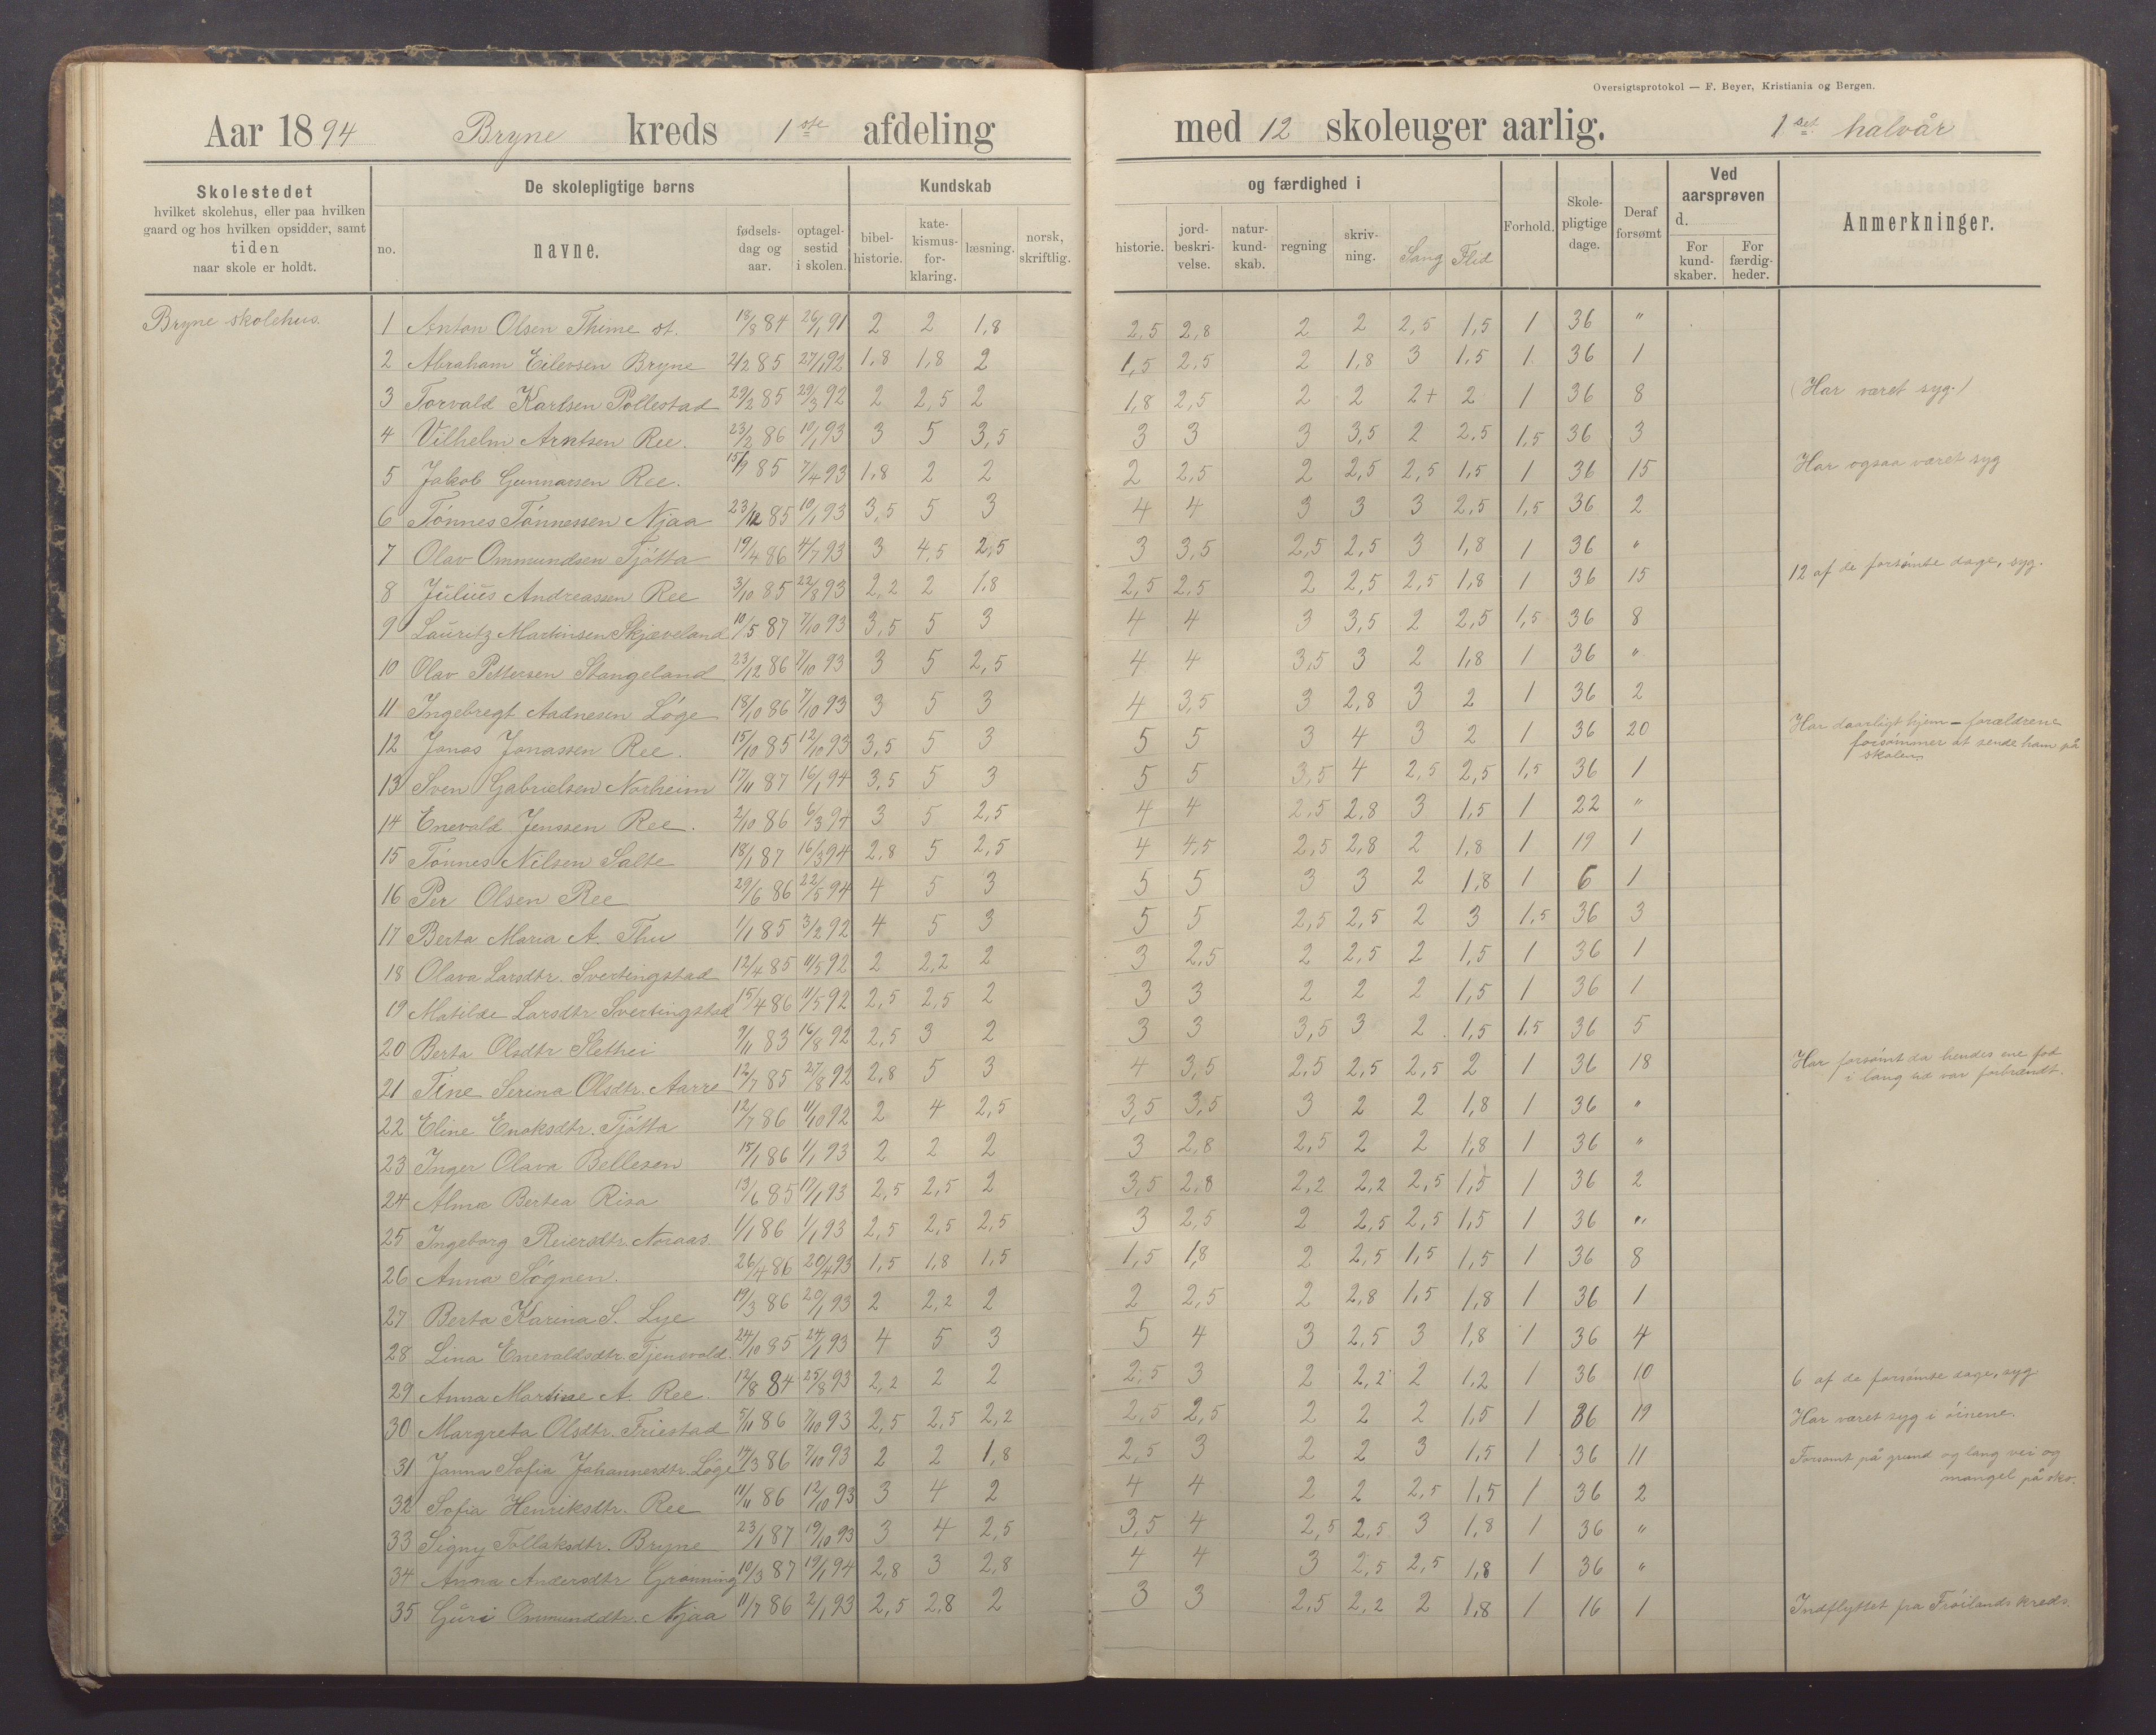 Oversigtsprotokol — F. Beyer, Kristiania og Bergen.
Aar 1894 Bryne kreds 1ste afdeling med 12 skoleuger aarlig. 1ste halvår
Skolestedet hvilket skolehus, eller paa hvilken gaard og hos hvilken opsidder, samt tiden naar skole er holdt.
De skolepligtige børns
Kundskab og færdighed i
no. navne. fødselsdag og aar. optagelsestid i skolen. bibelhistorie. katekismusforklaring. læsning. norsk, skriftlig. historie. jordbeskrivelse. naturkundskab. regning skrivning. Sang Flid Forhold. Skolepligtige dage. Deraf forsømt
Ved aarsprøven d. For kundskaber. For færdigheder.
Anmerkninger.
Bryne skolehus.
1 Anton Olsen Thime st. 18/8 84 26/1 91 2 2 1,8 2,5 2,8 2 2 2,5 1,5 1 36 "
2 Abraham Eilevsen Bryne 2/2 85 27/1 92 1,8 1,8 2 1,5 2,5 2 1,8 3 1,5 1 36 1
3 Torvald Karlsen Pollestad 29/2 85 29/3 92 2 2,5 2 1,8 2,5 2 2 2+ 2 1 36 8 (Har været syg.)
4 Vilhelm Arntsen Ree. 23/2 86 10/1 93 3 5 3,5 3 3 3 3,5 2 2,5 1,5 36 3
5 Jakob Gunnarsen Ree. 15/9 85 7/4 93 1,8 2 2 2 2,5 2 2,5 2,5 1,5 1 36 15 Har ogsaa været syg
6 Tønnes Tønnessen Njaa 23/12 85 10/1 93 3,5 5 3 4 4 3 3 3 2,5 1,5 36 2
7 Olav Ommundsen Tjøtta 19/4 86 4/7 93 3 4,5 2,5 3 3,5 2,5 2,5 3 1,8 1 36 "
8 Julius Andreassen Ree 3/10 85 22/8 93 2,2 2 1,8 2,5 2,5 2 2,5 2,5 1,8 1 36 15 12 af de forsømte dage, syg.
9 Lauritz Martinsen Skjæveland 10/5 87 7/10 93 3,5 5 3 4 4 3 3,5 2 2,5 1,5 36 8
10 Olav Pettersen Stangeland 23/12 86 7/10 93 3 5 2,5 4 4 3,5 3 2 1,8 1 36 "
11 Ingebregt Aadnesen Løge 18/10 86 7/10 93 3 5 3 4 3,5 3 2,8 3 2 1 36 2
12 Jonas Jonassen Ree. 15/10 85 12/10 93 3,5 5 3 5 5 3 4 3 2 1 36 20 Har daarligt hjem – forældrene
forsømmer at sende ham på
skolen
13 Sven Gabrielsen Norheim 17/11 87 16/1 94 3,5 5 3 5 5 3,5 4 2,5 2,5 1,5 36 1
14 Enevald Jenssen Ree. 2/10 86 6/3 94 3 5 2,5 4 4 2,5 2,8 3 1,5 1 22 "
15 Tønnes Nilsen Salte 18/1 87 16/3 94 2,8 5 2,5 4 4,5 2,5 2,8 2 1,8 1 19 1
16 Per Olsen Ree 29/6 86 22/5 94 4 5 3 5 5 3 3 2 1,8 1 6 1
17 Berta Maria A. Thu 1/1 85 3/2 92 4 5 3 5 5 2,5 2,5 2 3 1,5 36 3
18 Olava Larsdtr. Svertingstad 12/4 85 11/5 92 2 2,2 2 3 2,5 2 2,5 2 1,5 1 36 1
19 Matilde Larsdtr. Svertingstad 15/4 86 11/5 92 2,5 2,5 2 3 3 2 2 2 1,5 1 36 1
20 Berta Olsdtr. Slethei 9/11 83 16/8 92 2,5 3 2 3 3 3,5 3 2 1,5 1,5 36 5
21 Tine Serina Olsdtr. Aarre 12/7 85 27/8 92 2,8 5 3 4 3,5 2,5 2,5 2,5 2 1 36 18 Har forsømt da hendes ene fod
i lang tid var forbrændt.
22 Eline Enoksdtr. Tjøtta 12/7 86 11/10 92 2 4 2,5 3,5 3,5 3 2 2 1,8 1 36 "
23 Inger Olava Bellesen 15/1 86 1/1 93 2 2 2 3 2,8 2,5 2 2 1,8 1 36 "
24 Alma Bertea Risa 13/6 85 17/1 93 2,5 2,5 2 3,5 2,8 2,2 2,2 2,5 1,5 1 36 2
25 Ingeborg Reiersdtr. Noraas. 1/1 86 1/1 93 2,5 2,5 2,5 3 2,5 2 2,5 2,5 1,5 1 36 "
26 Anna Søgnen. 26/4 86 20/4 93 1,5 1,8 1,5 1,5 1,8 2 2,5 1,5 1,5 1 36 8
27 Berta Karina S. Lye 19/3 86 20/1 93 2 2,2 2 2 2,5 2 2,8 1,5 1,8 1 36 1
28 Lina Enevaldsdtr. Tjenevold. 24/10 85 24/1 93 4 5 3 5 4 3 2,5 3 1,8 1 36 4
29 Anna Martine A. Ree. 12/8 84 25/8 93 2,2 2 2 2,5 3 2 2,2 2 1,2 1 36 10 6 af de forsømte dage, syg
30 Margreta Olsdtr. Friestad 5/11 86 7/10 93 2,5 2,5 2,2 2,5 2,5 2 2 2 1,5 1 36 19 Har været syg i øinene.
31 Janna Sofia Johannesdtr. Løge 14/3 86 7/10 93 2 2 1,8 2,5 3 2 2 3 1,5 1 36 11 Forsømt på grund og lang vei og
mangel på sko.
32 Sofia Henriksdtr. Ree 11/11 86 12/10 93 3 4 2 4 4 2 2 2,5 1,5 1 36 2
33 Signy Tollaksdtr. Bryne 23/1 87 19/10 93 3 4 2,5 3,5 4 2,5 2,5 3 1,8 1 36 "
34 Anna Andersdtr Grønning 10/3 87 19/1 94 2,8 3 2,8 4 4 3 2,5 2,5 1,8 1 36 "
35 Guri Ommunddtr. Njaa 11/7 86 2/1 93 2,5 2,8 2 3 3 2,5 2,2 2 1,8 1 16 1 Indflyttet fra Frøilands kreds.